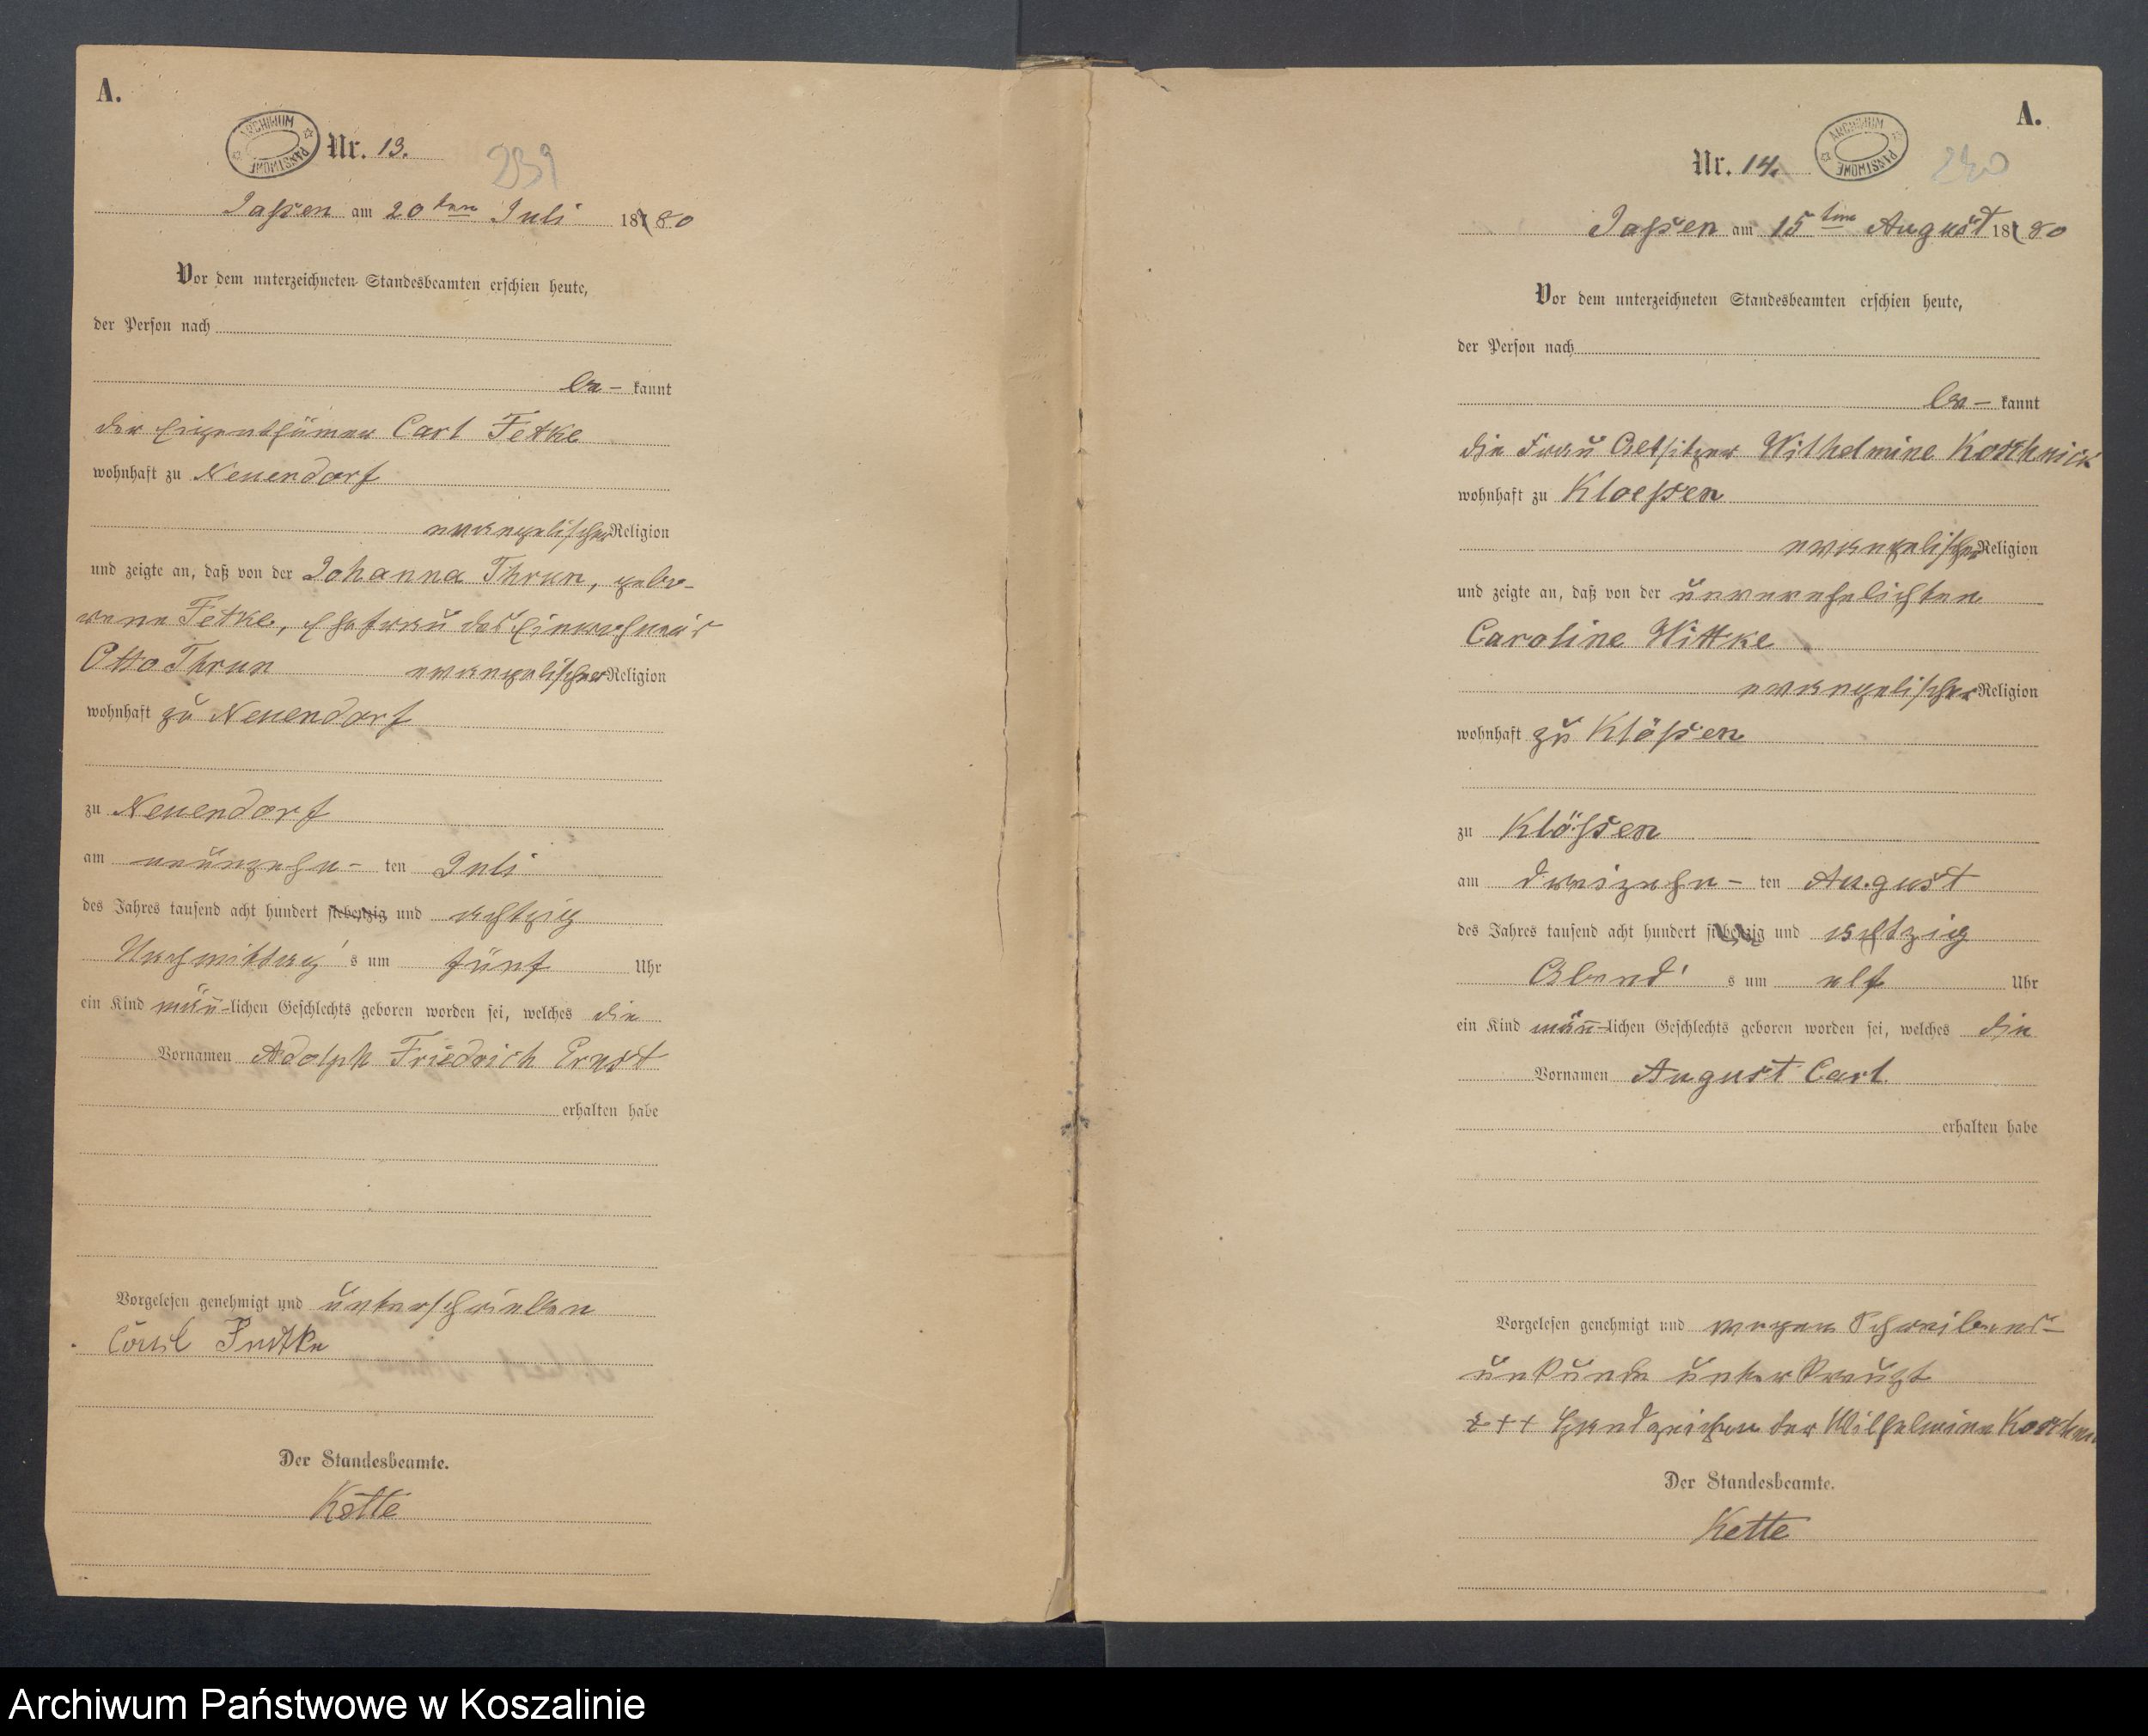 A.
ARCHIWUM PAŃSTWOWE
Nr. 13.
239
Jaßen am 20ten Juli 1880
Vor dem unterzeichneten Standesbeamten erschien heute,
der Person nach
be- kannt
der Eigenthümer Carl Fetke
wohnhaft zu Neuendorf
evangelischer Religion
und zeigte an, daß von der Johanna Thrun, gebo-
rene Fetke, Ehefrau des Einwohners
Otto Thrun evangelischer Religion
wohnhaft zu Neuendorf
zu Neuendorf
am neunzehn- ten Juli
des Jahres tausend acht hundert siebenzig und achtzig
Nachmittag's um fünf Uhr
ein Kind männ-lichen Geschlechts geboren worden sei, welches die
Vornamen Adolph Friedrich Ernst
erhalten habe
Vorgelesen genehmigt und unterschrieben
Carl
Der Standesbeamte.
Kette
A.
Nr. 14.
ARCHIWUM PAŃSTWOWE
240
Jaßen am 15ten August 1880
Vor dem unterzeichneten Standesbeamten erschien heute,
der Person nach
be- kannt
die Frau Altsitzer Wilhelmine Koschnick
wohnhaft zu Kloeßen
evangelischer Religion
und zeigte an, daß von der unverehelichten
Caroline Wittke
evangelischer Religion
wohnhaft zu Klößen
zu Klößen
am dreizehn- ten August
des Jahres tausend acht hundert siebenzig und achtzig
Abend's um elf Uhr
ein Kind männ-lichen Geschlechts geboren worden sei, welches die
Vornamen August Carl
erhalten habe
Vorgelesen genehmigt und wegen Schreibens-
unkunde unterkreuzt
+++ Handzeichen der Wilhelmine
Der Standesbeamte.
Kette
Archiwum Państwowe w Koszalinie